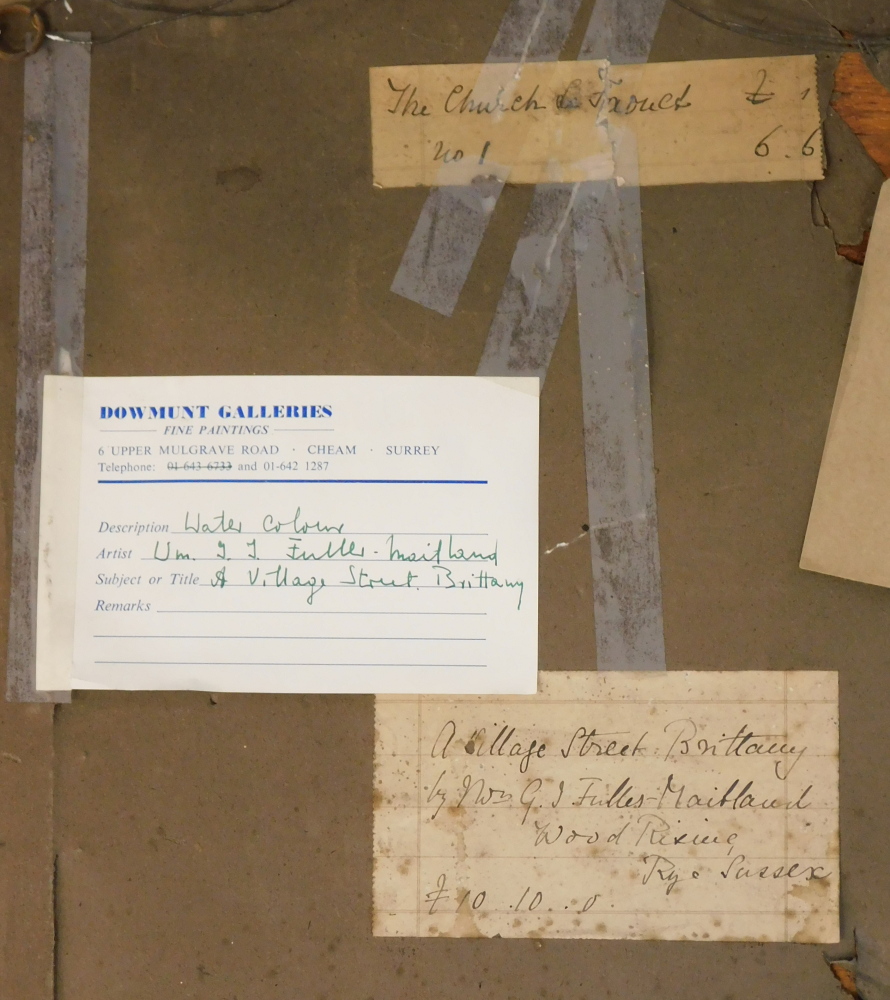 The Church Le Faouet £ 1
no 1 6.6
DOWMUNT GALLERIES
FINE PAINTINGS
6 UPPER MULGRAVE ROAD · CHEAM · SURREY
Telephone: 01-643 6733 and 01-642 1287
Description Water Colour
Artist Wm. G. J. Fuller-Maitland
Subject or Title A Village Street. Brittany
Remarks
A Village Street Brittany
by Mrs G. J Fuller-Maitland
Wood Rising
Rye Sussex
£10.10..0.